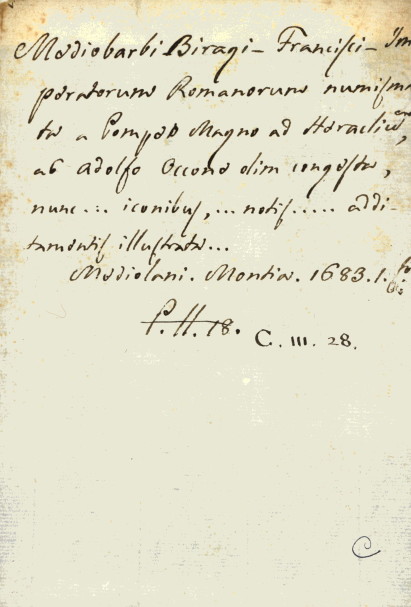 Mediobarbi Biragi - Francisci - Im
peratorum Romanorum numisma
ta a Pompeo Magno ad Heraclium,
ab Adolfo Occone olim congesta,
nunc... iconibus,... notis..... addi-
tamentis illustrata...
Mediolani. Montia. 1683. 1. fo
P. II. 18.
C. III. 28.
C